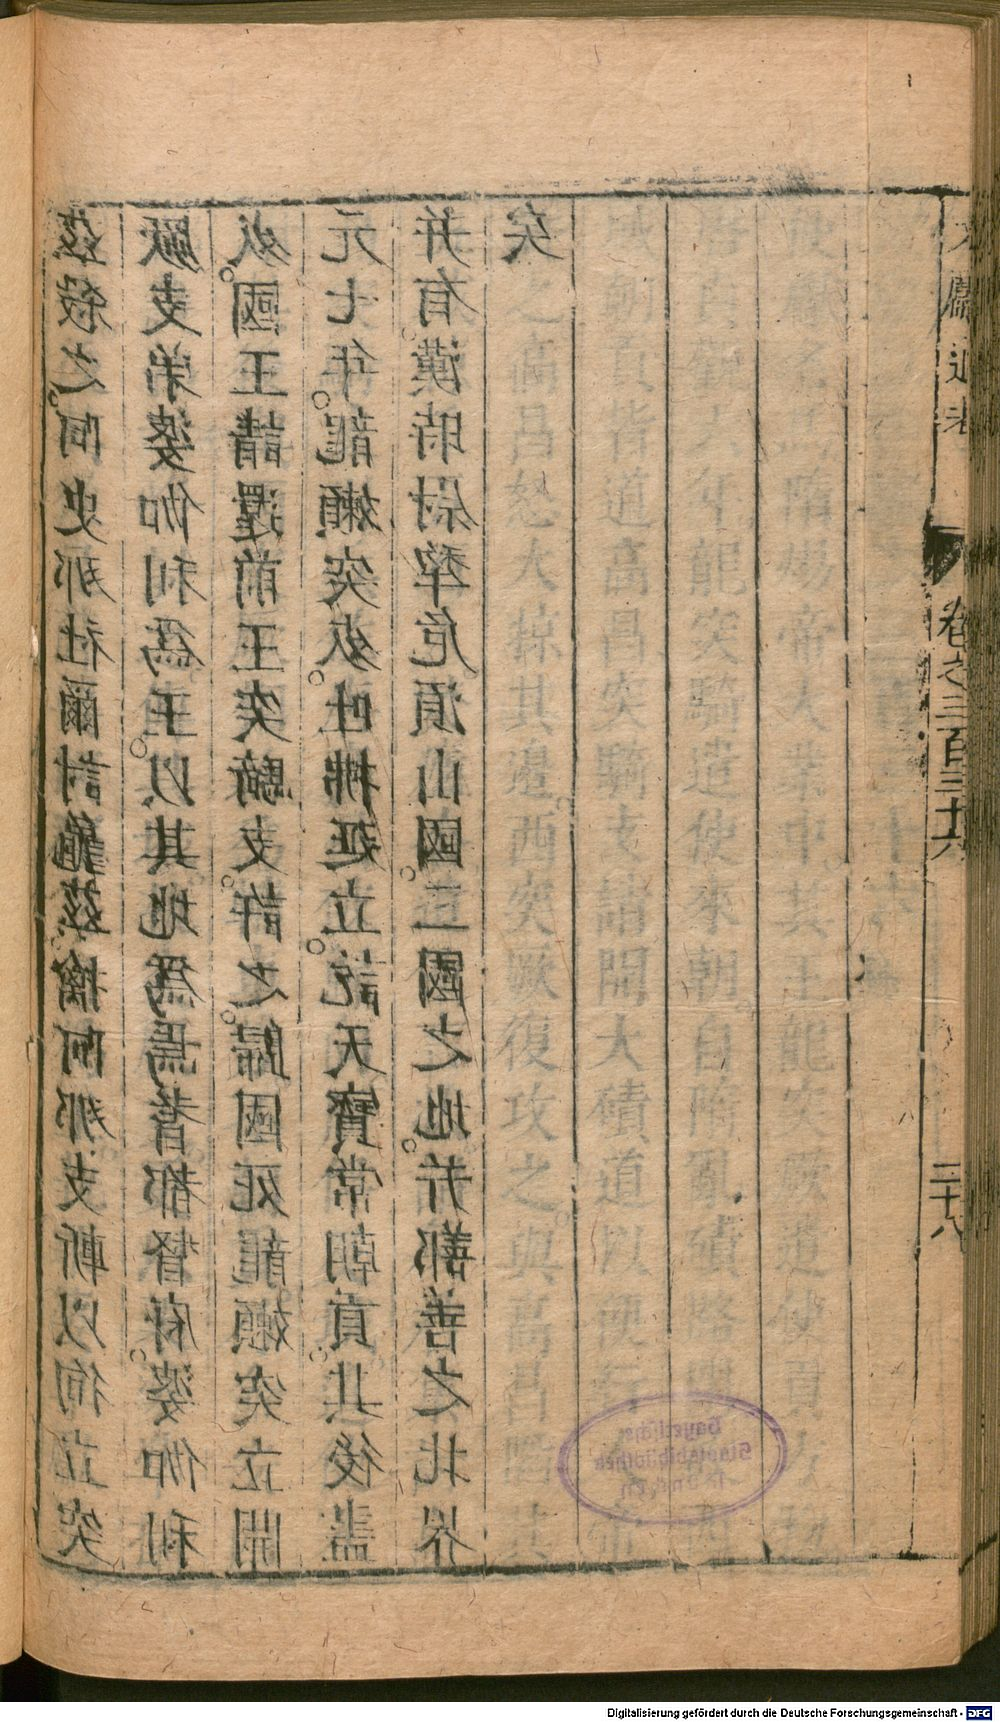 文獻通考 卷之三百三十六 二十八
茲殺之阿史那社爾討龜茲擒阿那支斬以徇立突
騎支弟婆伽利為王以其地為焉耆都督府婆伽利
死國王請還前王突騎支許之歸國死龍嬾突立開
元七年龍嬾突死吐拂延立訖天寶常朝貢其後盡
并有漢時尉犂危須山國三國之地并鄯善之北界
矣
Bayerische
Staatsbibliothek
München
Digitalisierung gefördert durch die Deutsche Forschungsgemeinschaft - DFG